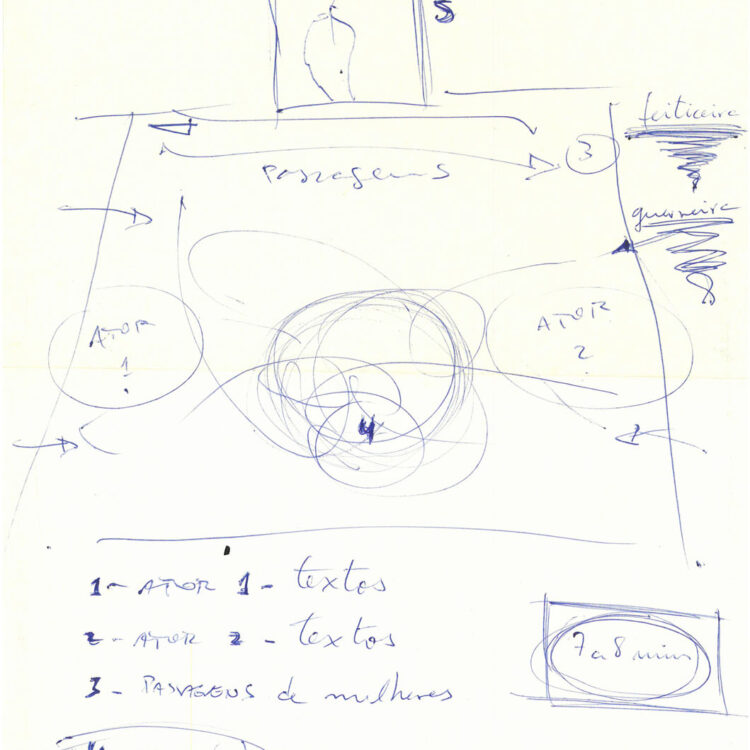 5
feiticeira
3
Passagens
guerreira
ATOR
1
ATOR
2
4
1- ATOR 1 - textos
2 - ATOR 2 - textos
3 - PASSAGENS de mulheres
7 a 8 min